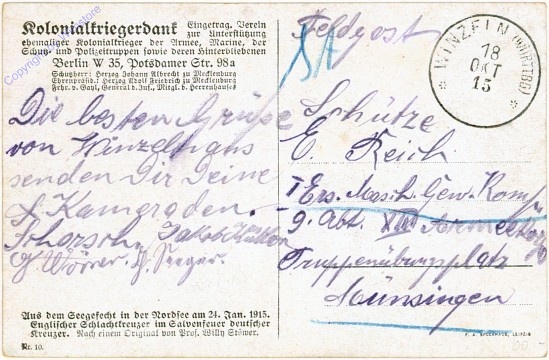 Kolonialkriegerdank Eingetrag. Verein
zur Unterstützung
ehemaliger Kolonialkrieger der Armee, Marine, der
Schutz- und Polizeitruppen sowie deren Hinterbliebenen
Berlin W 35, Potsdamer Str. 98a
Schutzherr: Herzog Johann Albrecht zu Mecklenburg
Ehrenpräsid.: Herzog Adolf Friedrich zu Mecklenburg
Frhr. v. Gayl, General d. Inf., Mitgl. d. Herrenhauses
Die besten Grüße
von Winzeln aus
senden Dir Deine
Kameraden.
Schorsch, Jakob
Seeger.
Aus dem Seegefecht in der Nordsee am 24. Jan. 1915.
Englischer Schlachtkreuzer im Salvenfeuer deutscher
Kreuzer. Nach einem Original von Prof. Willy Stöwer.
Nr. 10.
Feldpost
WINZELN (WÜRTTBG)
18
OKT
15
Schütze
E. Reich
I Ers. Masch. Gew. Komp.
9. Abt. XIII
Truppenübungsplatz
Münsingen